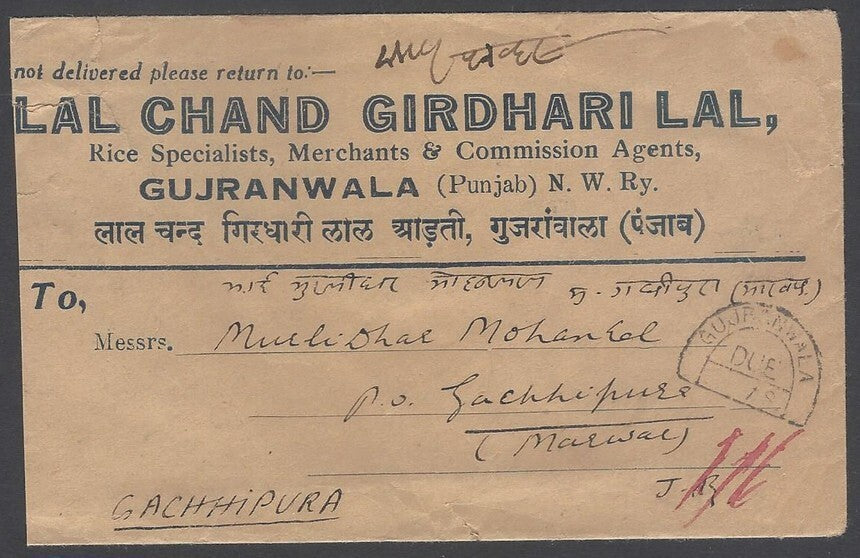 not delivered please return to:—
LAL CHAND GIRDHARI LAL,
Rice Specialists, Merchants & Commission Agents,
GUJRANWALA (Punjab) N. W. Ry.
लाल चन्द गिरधारी लाल आड़ती, गुजरांवाला (पंजाब)
To,
भाई मुरलीधर मोहनलाल
Messrs. Murlidhar Mohanlal
GUJRANWALA
DUE
P.O. Gachhipura
(Marwar)
J.R
GACHHIPURA